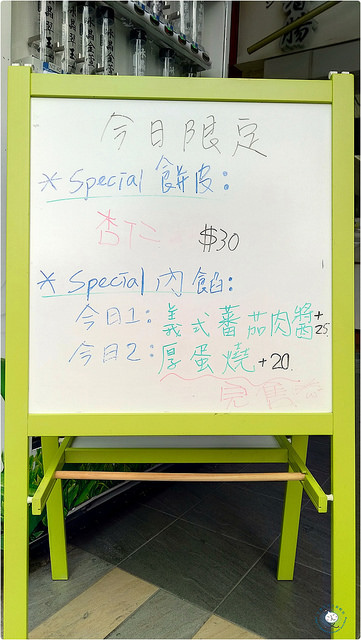 今日限定
* Special 餅皮：
杏仁 $30
* Special 內餡：
今日1：義式蕃茄肉醬+25
今日2：厚蛋燒+20
完售